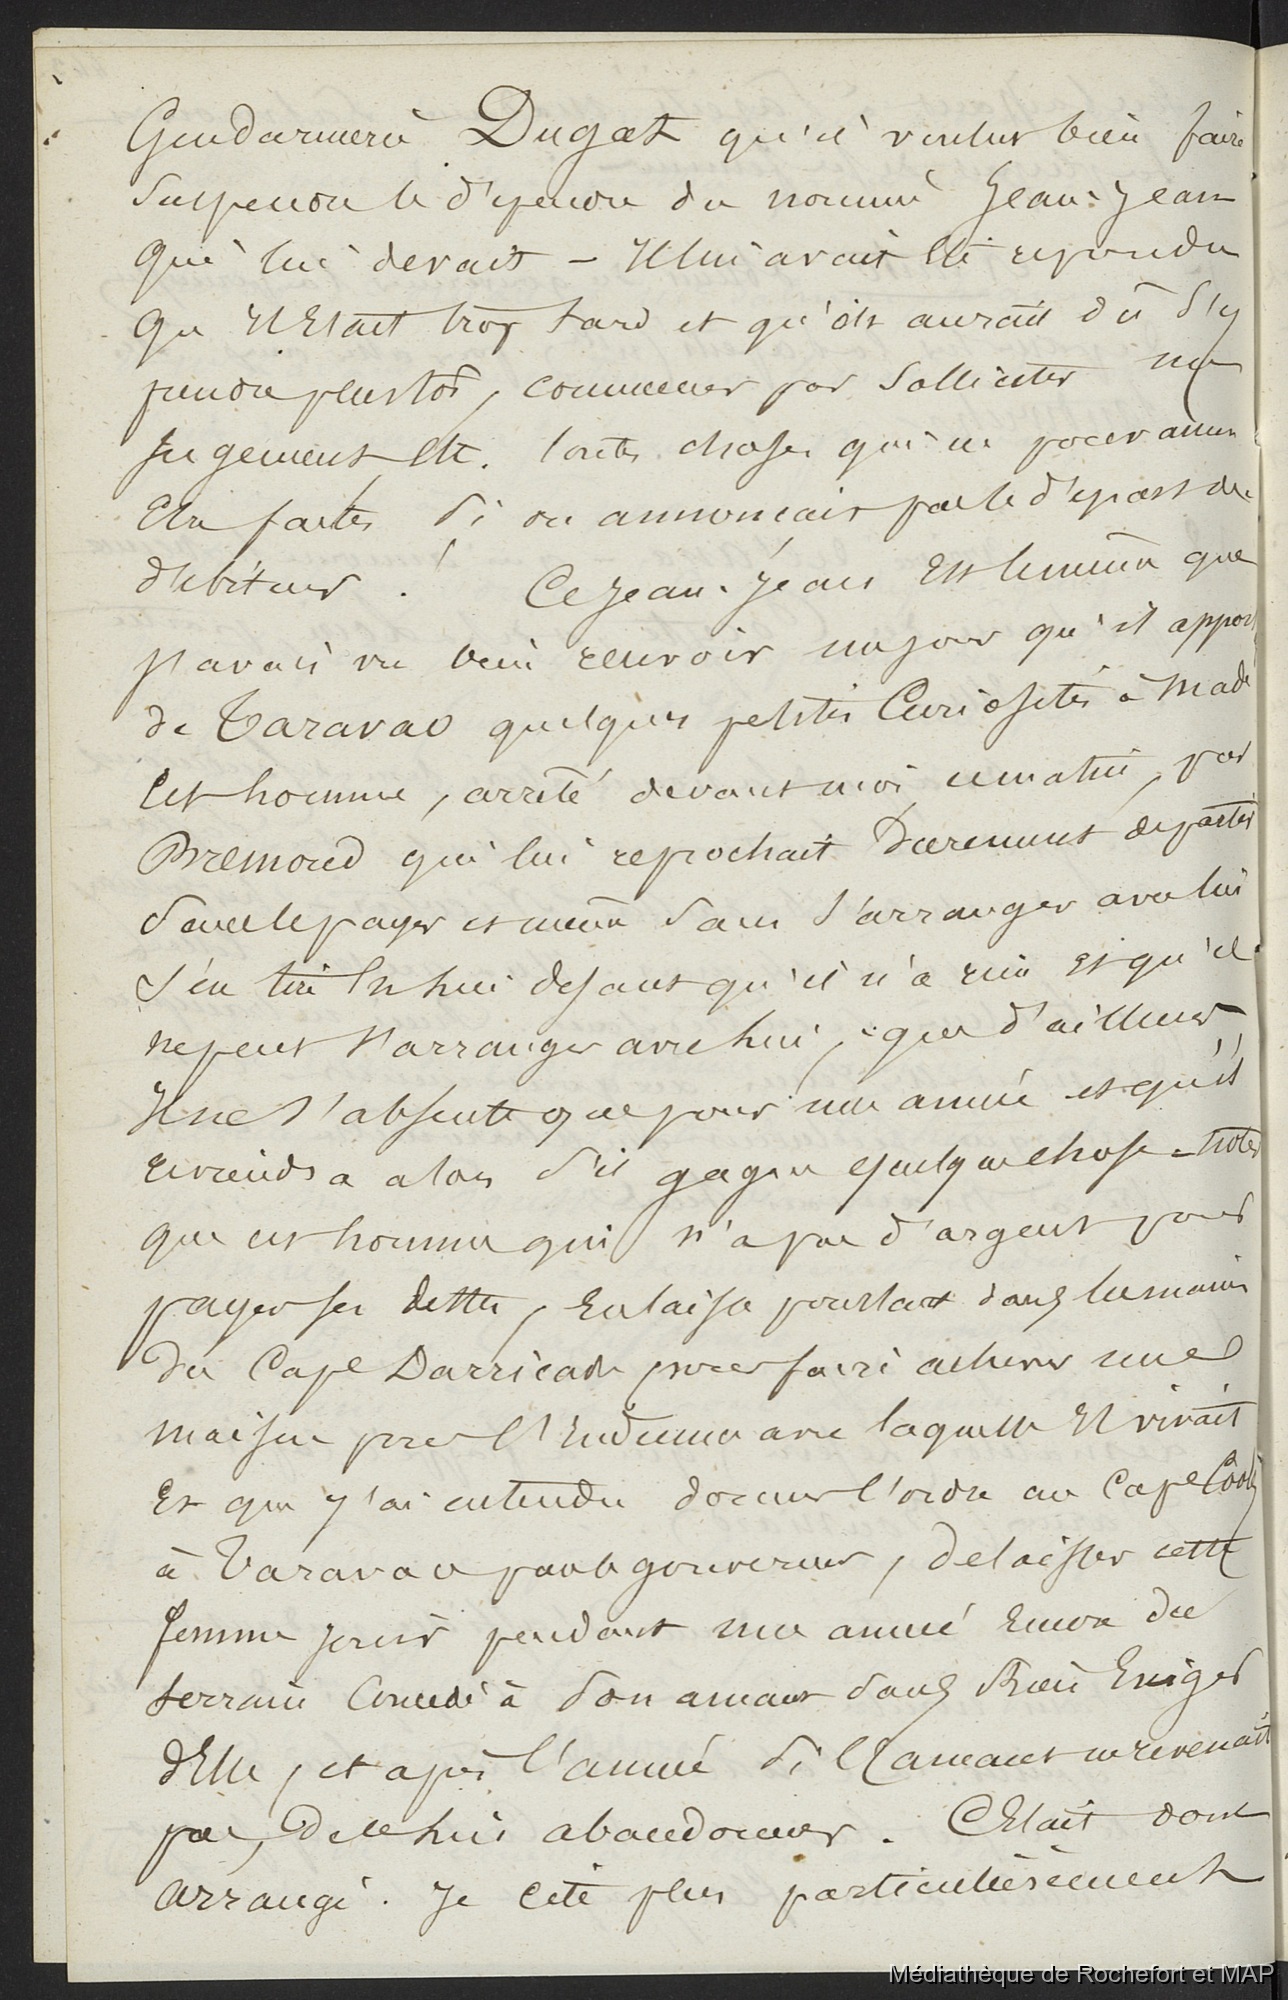 Gendarmerie Dugat qu'il voulut bien faire
suspendre le départ du nommé Jean-Jean
qui lui devait – Il lui avait été repondu
qu'il Etait trop tard et qu'on aurait dû s'y
prendre plustôt, commencer par solliciter un
jugement etc. toutes choses qui ne pouvaient
Etre faites si on annoncait pas le départ des
débiteurs ! Ce Jean-Jean est le même que
j'avais vu bien recevoir un jour qu'il apport
de Taravao quelques petites Curiosités à Mad
Cet homme, arrêté devant moi, ce matin, par
Bremond qui lui reprochait durement de partir
sans le payer et même sans s'arranger avec lui
s'en tire En lui disant qu'il n'a rien et qu'il
ne peut s'arranger avec lui, que d'ailleurs
Il ne s'absente que pour une année et qu'il
reviendra alors s'il gagne quelque chose – Notez
que cet homme qui n'a pas d'argent pour
payer ses dettes, En laisse pourtant dans les mains
du Cape Darricade pour faire achever une
maison pour l'Indienne avec laquelle Il vivait
Et que j'ai entendu donner l'ordre au Cape
à Taravao par le gouverneur, de laisser cette
femme jouir pendant une année Encore du
terrain Concédé à son amant sans Rien Exiger
d'Elle, et après l'année si l'amant ne revenait
pas, de le lui abandonner. C'Etait donc
arrangé. Je cite plus particulièrement
Médiathèque de Rochefort et MAP